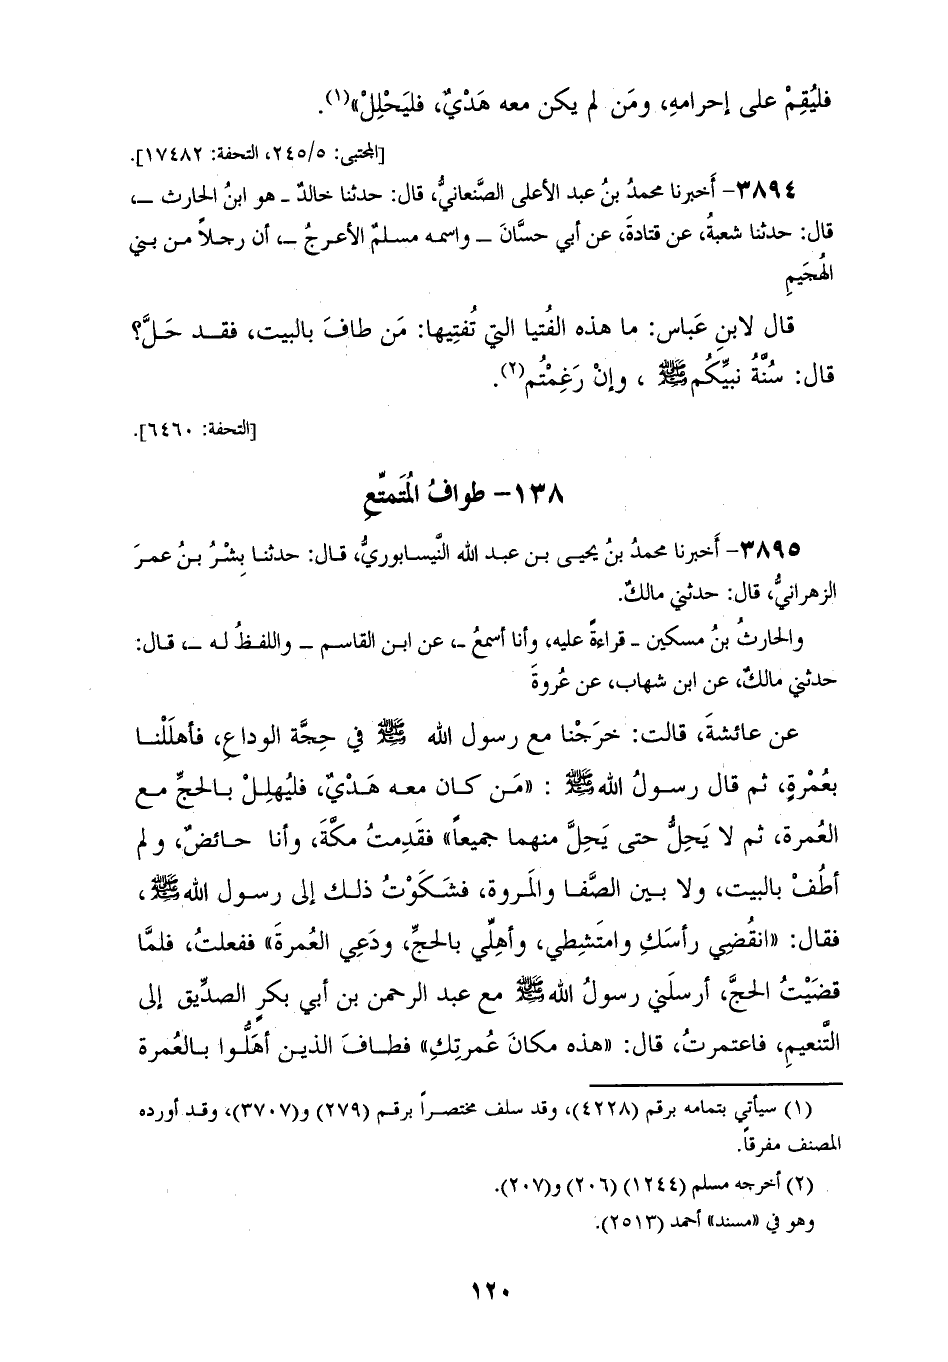 فليُقِمْ على إحرامهِ، ومَن لم يكن معه هَدْيٌ، فليَحْلِلْ»(١).
[المجتبى: ٢٤٥/٥، التحفة: ١٧٤٨٢].
٣٨٩٤- أَخبرنا محمدُ بنُ عبد الأعلى الصَّنعانيُّ، قال: حدثنا خالدٌ ـ هو ابنُ الحارث ـ،
قال: حدثنا شعبةُ، عن قتادةَ، عن أبي حسَّانَ ـ واسمه مسلمٌ الأعرجُ ـ، أن رجلاً من بني
الهُجَيمِ
قال لابنِ عَباس: ما هذه الفُتيا التي تُفتِيها: مَن طافَ بالبيت، فقد حَلَّ؟
قال: سُنَّةُ نبيِّكُم ﷺ ، وإنْ رَغِمْتُم(٢).
[التحفة: ٦٤٦٠].
١٣٨- طوافُ المُتَمتِّعِ
٣٨٩٥- أَخبرنا محمدُ بنُ يحيى بن عبد الله النَّيسابوريُّ، قال: حدثنا بِشْرُ بنُ عمرَ
الزهرانيُّ، قال: حدثني مالكٌ.
والحارثُ بنُ مسكين ـ قراءةً عليه، وأنا أسمعُ ـ، عن ابن القاسم ـ واللفظُ له ـ، قال:
حدثني مالكٌ، عن ابن شهاب، عن عُروةَ
عن عائشةَ، قالت: خرَجْنا مع رسول الله ﷺ في حِجَّة الوداعِ، فأهلَلْنا
بعُمْرةٍ، ثم قال رسولُ الله ﷺ : «مَن كان معه هَدْيٌ، فليُهلِلْ بالحجِّ مع
العُمرة، ثم لا يَحِلُّ حتى يَحِلَّ منهما جميعاً» فقَدِمتُ مكَّةَ، وأنا حائضٌ، ولم
أطُفْ بالبيت، ولا بين الصَّفا والمَروة، فشكَوْتُ ذلك إلى رسول الله ﷺ،
فقال: «انقُضي رأسَكِ وامتَشِطي، وأهِلِّي بالحجِّ، ودَعي العُمرةَ» ففعلتُ، فلمَّا
قضَيْتُ الحجَّ، أرسلَني رسولُ الله ﷺ مع عبد الرحمن بن أبي بكرٍ الصدِّيق إلى
التَّنعيمِ، فاعتمرتُ، قال: «هذه مكانَ عُمرتِكِ» فطافَ الذين أهَلُّوا بالعُمرة
(١) سيأتي بتمامه برقم (٤٢٢٨)، وقد سلف مختصراً برقم (٢٧٩) و(٣٧٠٧)، وقد أورده
المصنف مفرقاً.
(٢) أخرجه مسلم (١٢٤٤) (٢٠٦) و(٢٠٧).
وهو في «مسند» أحمد (٢٥١٣).
١٢٠